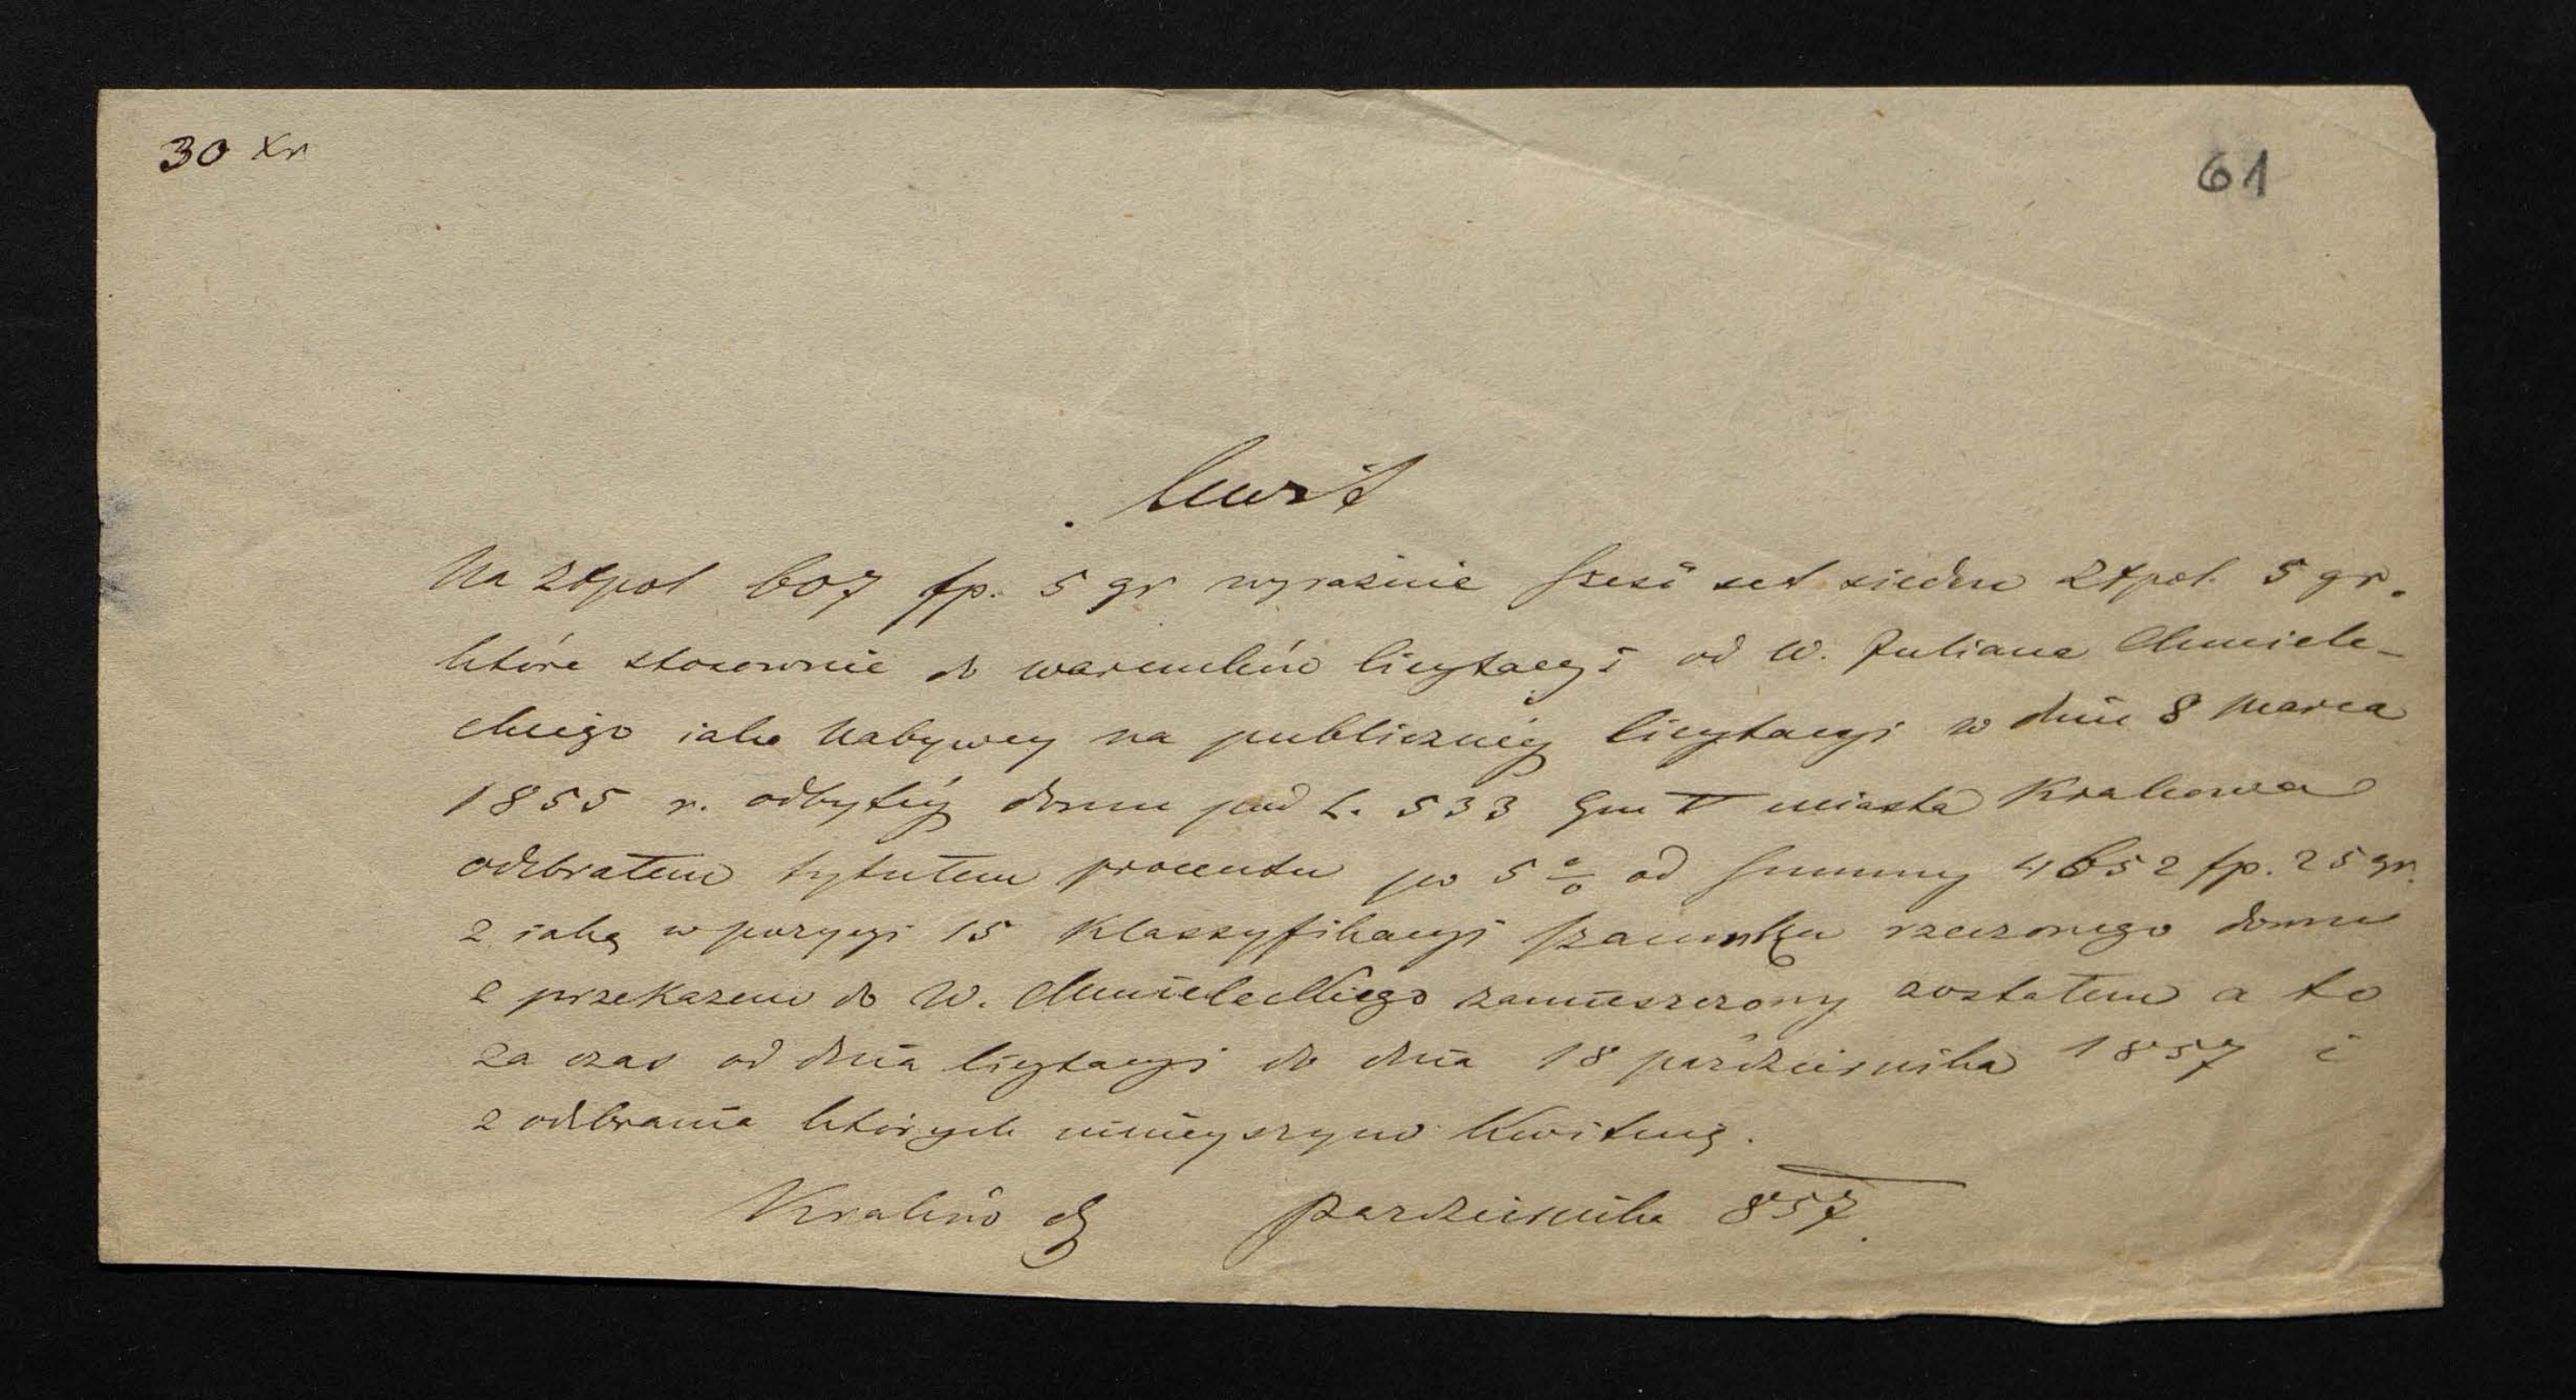 30 xr
61
Kwit
Na złpol 607 fp. 5 gr wyraźnie sześć set siedem złpol. 5 gr.
które stosownie do warunków licytacyi od W. Juliana Chmiele-
ckiego iako nabywcy na publicznéy licytacyi w dniu 8 Marca
1855 r. odbytéy domu pod L. 533 Gm V miasta Krakowa
odebrałem tytułem procentu po 5 % od summy 4652 fp. 25 gr.
z iaką w pozycyi 15 Klassyfikacyi szacunku rzeczonego domu
z przekazem do W. Chmieleckiego zamieszczony zostałem a to
za czas od dnia licytacyi do dnia 18 października 1857 i
z odebrania których ninieyszym kwituię.
Kraków d października 857.